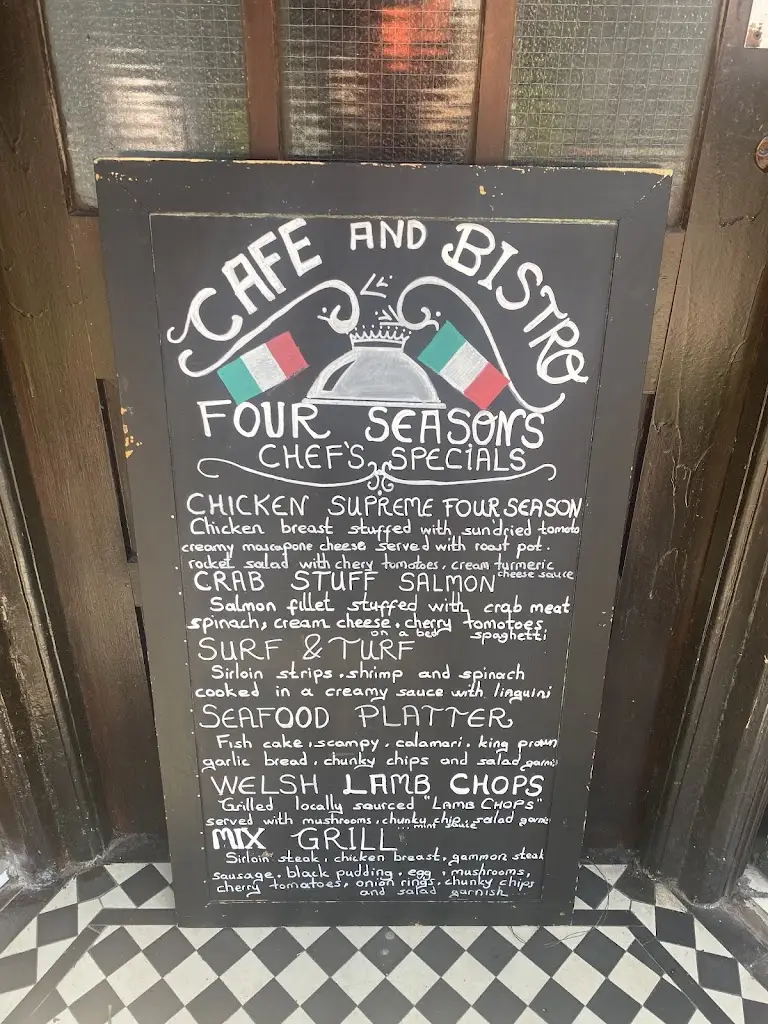 CAFE AND BISTRO
FOUR SEASONS
CHEF'S SPECIALS
CHICKEN SUPREME FOUR SEASON
Chicken breast stuffed with sun'dried tomato
creamy mascapone cheese served with roast pot.
rocket salad with chery tomatoes, cream turmeric
cheese sauce
CRAB STUFF SALMON
Salmon fillet stuffed with crab meat
spinach, cream cheese, cherry tomotoes
on a bed spaghetti
SURF & TURF
Sirloin strips, shrimp and spinach
cooked in a creamy sauce with linguini
SEAFOOD PLATTER
Fish cake, scampy, calamari, king prawn
garlic bread, chunky chips and salad garni
WELSH LAMB CHOPS
Grilled locally sourced "LAMB CHOPS"
served with mushrooms, chunky chip, salad garni
mint sauce
MIX GRILL
Sirloin steak, chicken breast, gammon steak
sausage, black pudding, egg, mushrooms,
cherry tomatoes, onion rings, chunky chips
and salad garnish